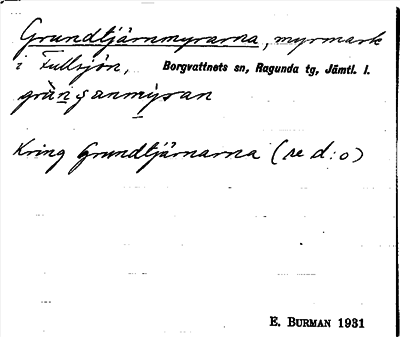 Grundtjärnmyrarna, myrmark
i Fullsjön, Borgvattnets sn, Ragunda tg, Jämtl. l.
Kring Grundtjärnarna (se d:o)
E. BURMAN 1931